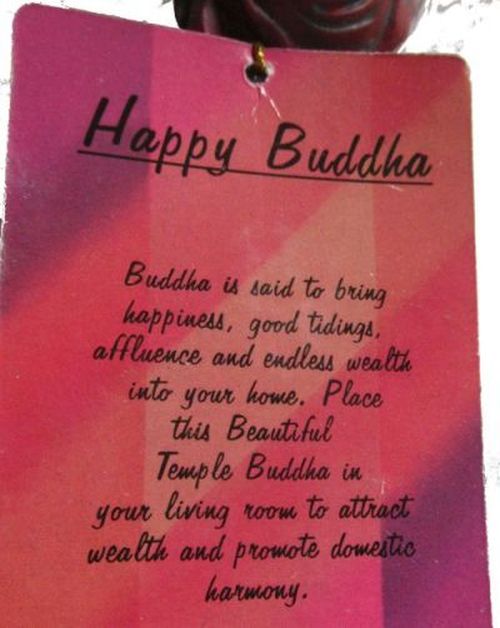 Happy Buddha
Buddha is said to bring
happiness, good tidings,
affluence and endless wealth
into your home. Place
this Beautiful
Temple Buddha in
your living room to attract
wealth and promote domestic
harmony.